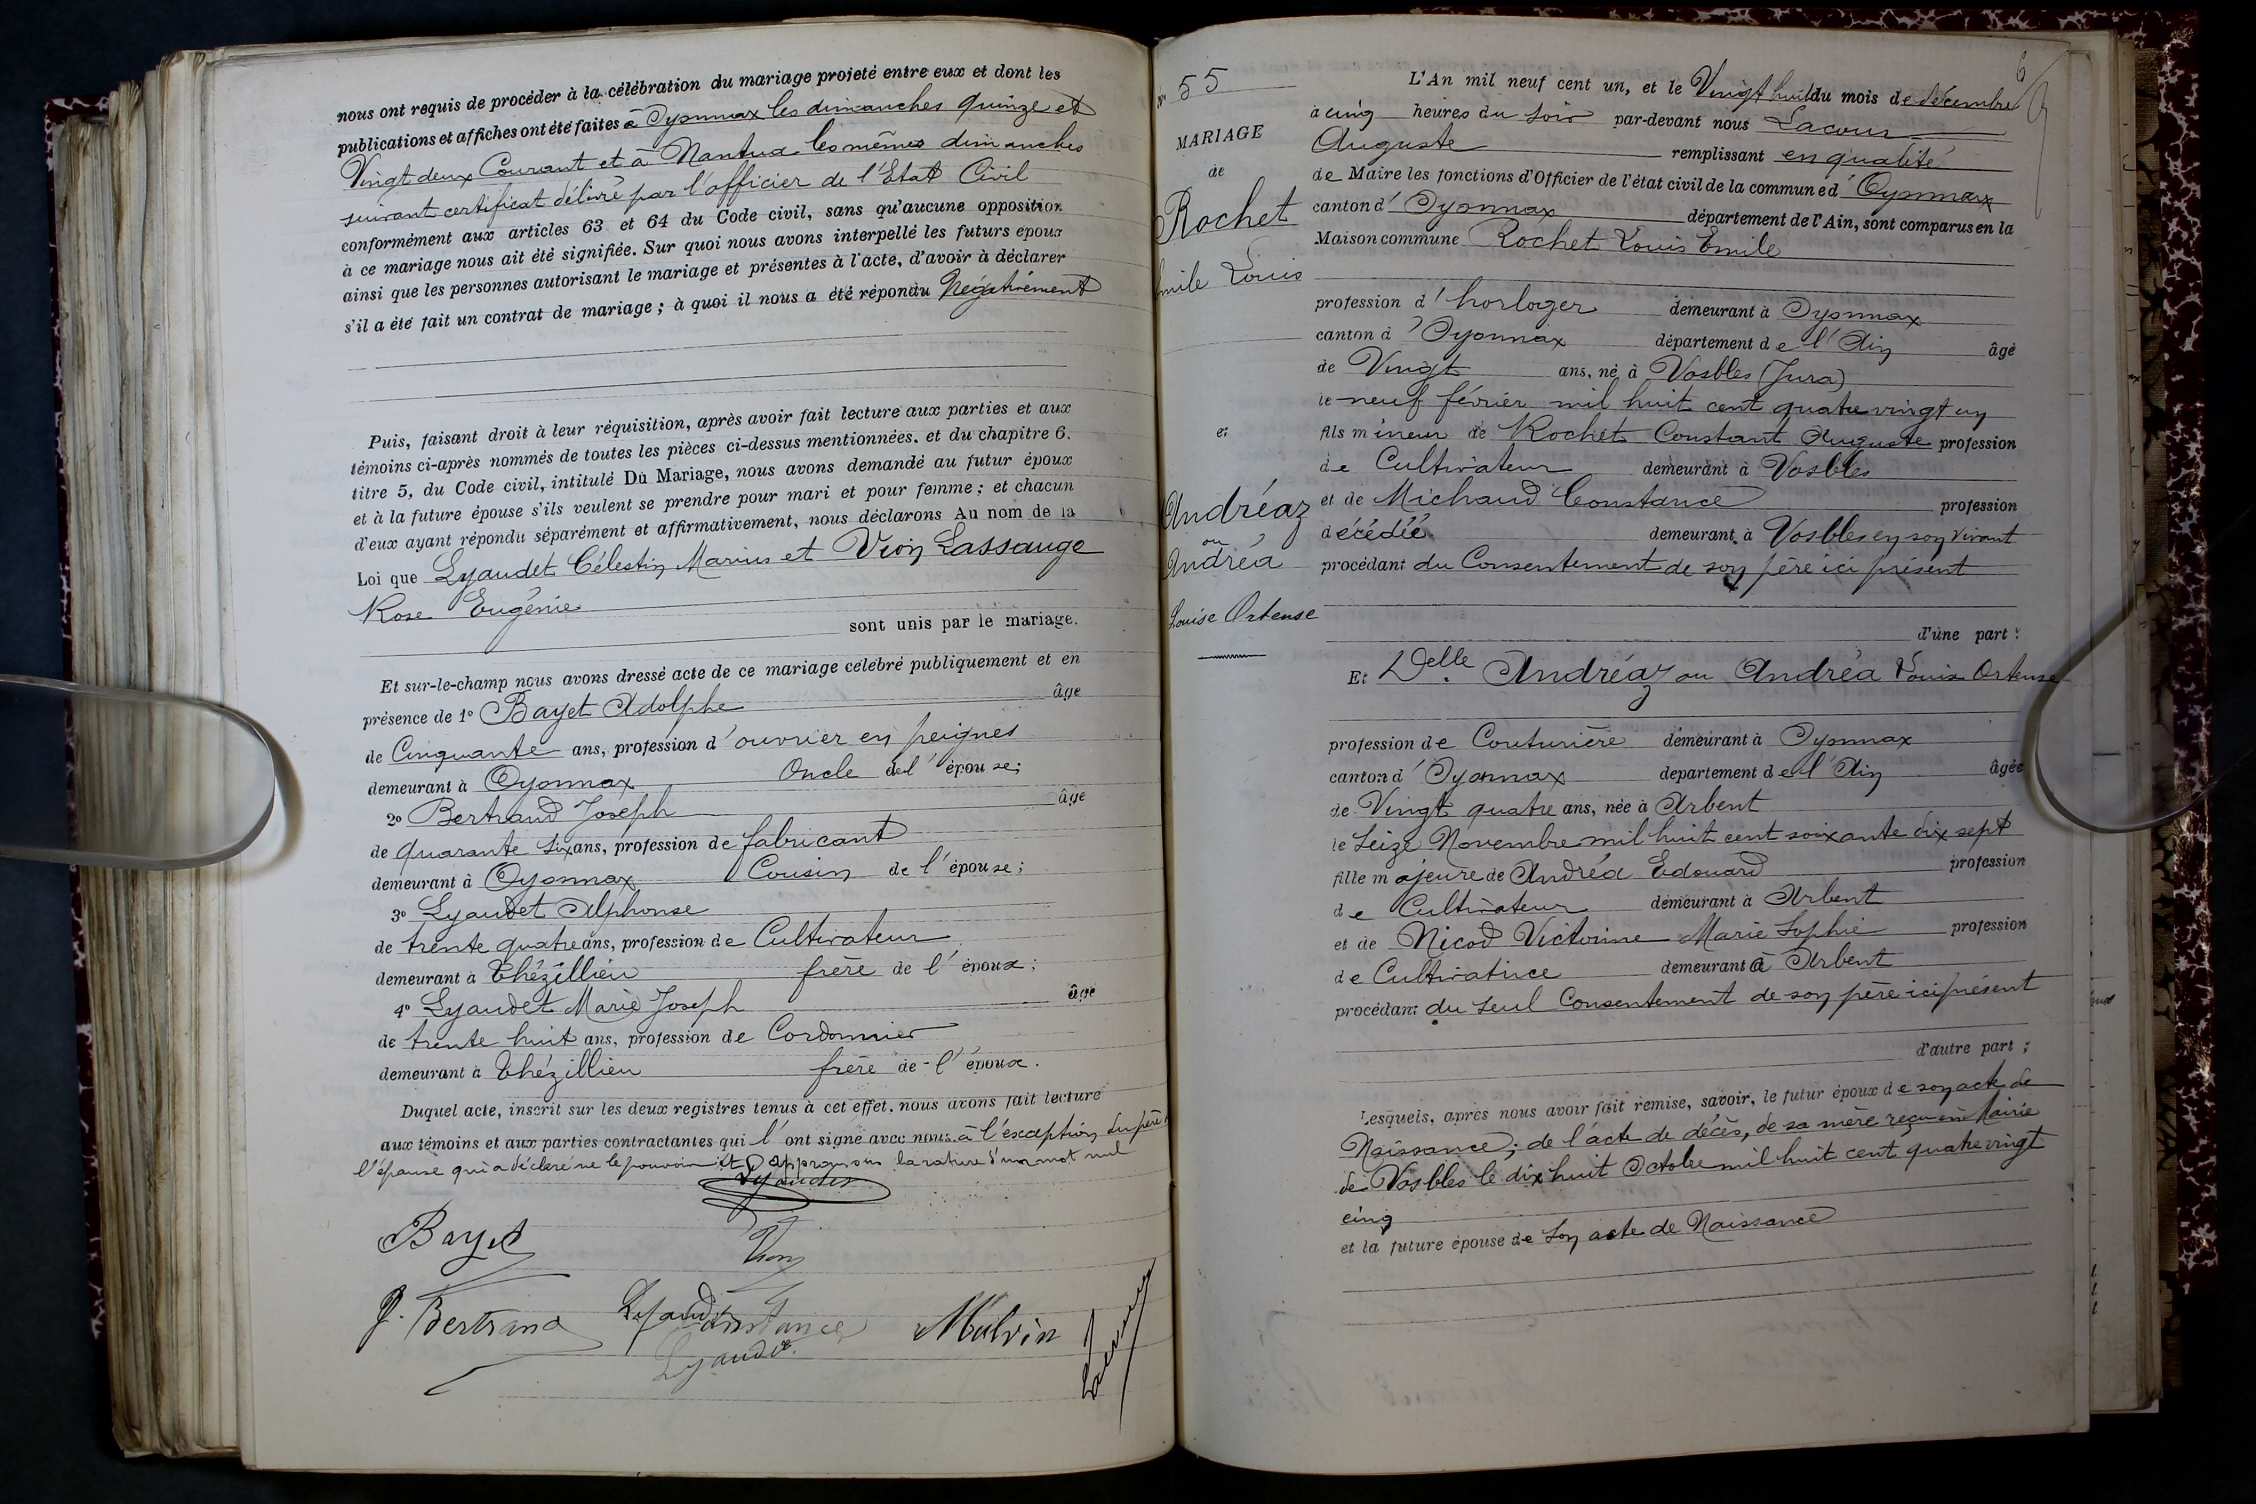 nous ont requis de procéder à la célébration du mariage projeté entre eux et dont les
publications et affiches ont été faites à Oyonnax les dimanches quinze et
Vingt deux Courant et à Nantua les mêmes dimanches
suivant certificat délivré par l'officier de l'Etat Civil
conformément aux articles 63 et 64 du Code civil, sans qu'aucune opposition
à ce mariage nous ait été signifiée. Sur quoi nous avons interpellé les futurs époux
ainsi que les personnes autorisant le mariage et présentes à l'acte, d'avoir à déclarer
s'il a été fait un contrat de mariage ; à quoi il nous a été répondu Négativement
Puis, faisant droit à leur réquisition, après avoir fait lecture aux parties et aux
témoins ci-après nommés de toutes les pièces ci-dessus mentionnées, et du chapitre 6,
titre 5, du Code civil, intitulé Du Mariage, nous avons demandé au futur époux
et à la future épouse s'ils veulent se prendre pour mari et pour femme ; et chacun
d'eux ayant répondu séparément et affirmativement, nous déclarons Au nom de la
Loi que Lyaudet Célestin Marius et Vion Lassauge
Rose Eugénie
sont unis par le mariage.
Et sur-le-champ nous avons dressé acte de ce mariage célébré publiquement et en
présence de 1º Bayet Adolphe âge
de Cinquante ans, profession d'ouvrier en peignes
demeurant à Oyonnax Oncle de l'épouse ;
2º Bertrand Joseph âge
de quarante six ans, profession de fabricant
demeurant à Oyonnax Cousin de l'épouse ;
3º Lyaudet Alphonse
de trente quatre ans, profession de Cultivateur
demeurant à Thézillieu frère de l'époux ;
4º Lyaudet Marie Joseph âge
de trente huit ans, profession de Cordonnier
demeurant à Thézillieu frère de l'époux.
Duquel acte, inscrit sur les deux registres tenus à cet effet, nous avons fait lecture
aux témoins et aux parties contractantes qui l'ont signé avec nous à l'exception du père
l'épouse qui a déclaré ne le pouvoir et approuvons la rature d'un mot nul
Lyaudet
Bayet
Vion
J. Bertrand Lyaudet Constance Malvin
Lyaudet
Nº 55
MARIAGE
de
Rochet
Emile Louis
et
Andréaz
ou
Andréa
Louise Ortense
L'An mil neuf cent un, et le Vingt huit du mois de décembre
à cinq heures du soir par-devant nous Lacour
Auguste remplissant en qualité
de Maire les fonctions d'Officier de l'état civil de la commune d'Oyonnax
canton d'Oyonnax département de l'Ain, sont comparus en la
Maison commune Rochet Louis Emile
profession d'horloger demeurant à Oyonnax
canton d'Oyonnax département de l'Ain âgé
de Vingt ans, né à Vosbles (Jura)
le neuf février mil huit cent quatre vingt un
fils mineur de Rochet Constant Auguste profession
de Cultivateur demeurant à Vosbles
et de Michaud Constance profession
décédée demeurant à Vosbles en son vivant
procédant du Consentement de son père ici présent
d'une part :
Et Delle Andréaz ou Andréa Louise Ortense
profession de Couturière demeurant à Oyonnax
canton d'Oyonnax departement de l'Ain âgée
de Vingt quatre ans, née à Arbent
le Seize Novembre mil huit cent soixante dix sept
fille majeure de Andréa Edouard profession
de Cultivateur demeurant à Arbent
et de Nicod Victorine Marie Sophie profession
de Cultivatrice demeurant à Arbent
procédant du seul Consentement de son père ici présent
d'autre part ;
Lesquels, après nous avoir fait remise, savoir, le futur époux de son acte de
Naissance ; de l'acte de décès, de sa mère reçu en Mairie
de Vosbles le dix huit Octobre mil huit cent quatre vingt
cinq
et la future épouse de son acte de Naissance